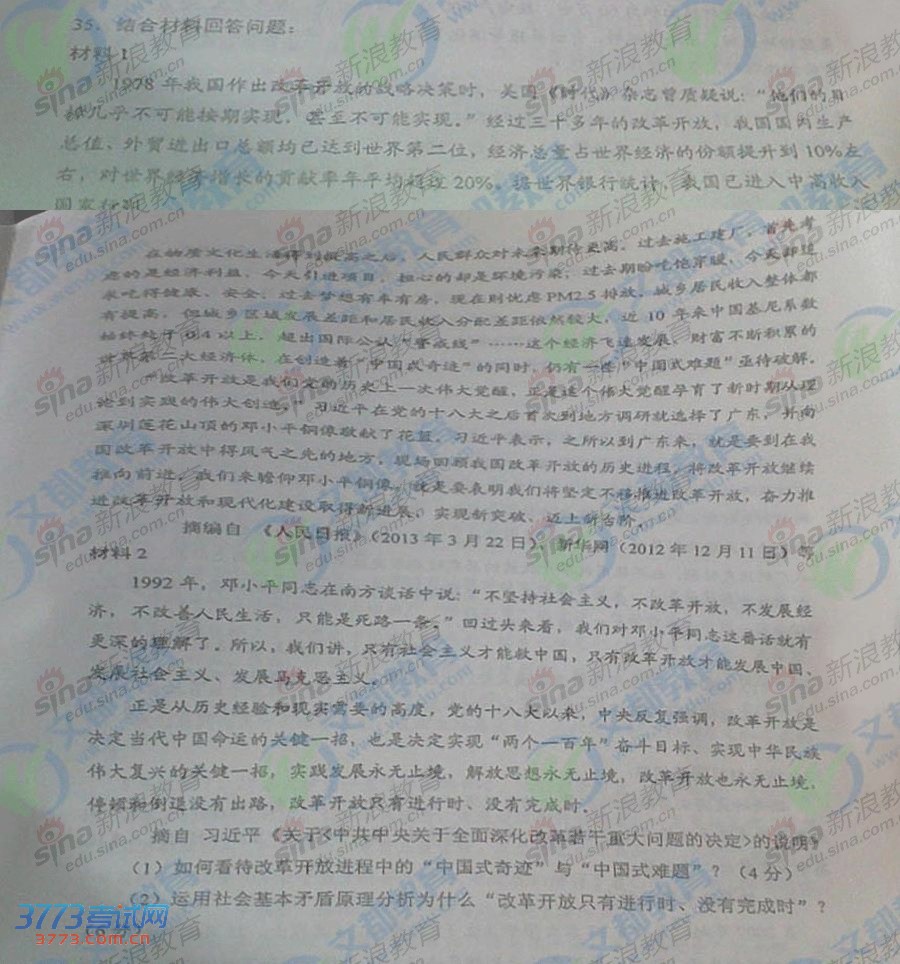 35. 结合材料回答问题：
材料 1
1978 年我国作出改革开放的战略决策时，美国《时代》杂志曾质疑说：“他们的目
标几乎不可能按期实现，甚至不可能实现。”经过三十多年的改革开放，我国国内生产
总值、外贸进出口总额均已达到世界第二位，经济总量占世界经济的份额提升到 10%左
右，对世界经济增长的贡献率年平均超过 20%。据世界银行统计，我国已进入中高收入
国家行列。
在物质文化生活得到提高之后，人民群众对未来期待更高。过去施工建厂，首先考
虑的是经济利益，今天引进项目，担心的却是环境污染；过去期盼吃饱穿暖，今天却追
求吃得健康、安全；过去梦想有车有房，现在则忧虑 PM2.5 排放。城乡居民收入整体都
有提高，但城乡区域发展差距和居民收入分配差距依然较大，近 10 年来中国基尼系数
始终处于 0.4 以上，超出国际公认“警戒线”……这个经济飞速发展、财富不断积累的
世界第二大经济体，在创造着“中国式奇迹”的同时，仍有一些“中国式难题”亟待破解。
“改革开放是我们党的历史上一次伟大觉醒，正是这个伟大觉醒孕育了新时期从理
论到实践的伟大创造。”习近平在党的十八大之后首次到地方调研就选择了广东，并向
深圳莲花山顶的邓小平铜像敬献了花篮。习近平表示，之所以到广东来，就是要到在我
国改革开放中得风气之先的地方，现场回顾我国改革开放的历史进程，将改革开放继续
推向前进。我们来瞻仰邓小平铜像，就是要表明我们将坚定不移推进改革开放，奋力推
进改革开放和现代化建设取得新进展、实现新突破、迈上新台阶。
摘编自 《人民日报》（2013 年 3 月 22 日）、新华网（2012 年 12 月 11 日）等
材料 2
1992 年，邓小平同志在南方谈话中说：“不坚持社会主义，不改革开放，不发展经
济，不改善人民生活，只能是死路一条。”回过头来看，我们对邓小平同志这番话就有
更深的理解了。所以，我们讲，只有社会主义才能救中国，只有改革开放才能发展中国、
发展社会主义、发展马克思主义。
正是从历史经验和现实需要的高度，党的十八大以来，中央反复强调，改革开放是
决定当代中国命运的关键一招，也是决定实现“两个一百年”奋斗目标、实现中华民族
伟大复兴的关键一招，实践发展永无止境，解放思想永无止境，改革开放也永无止境，
停顿和倒退没有出路，改革开放只有进行时、没有完成时。
摘自 习近平《关于〈中共中央关于全面深化改革若干重大问题的决定〉的说明》
（1）如何看待改革开放进程中的“中国式奇迹”与“中国式难题”？（4 分）
（2）运用社会基本矛盾原理分析为什么“改革开放只有进行时、没有完成时”？
3773考试网
3773.com.cn
sina新浪教育
edu.sina.com.cn
文都教育